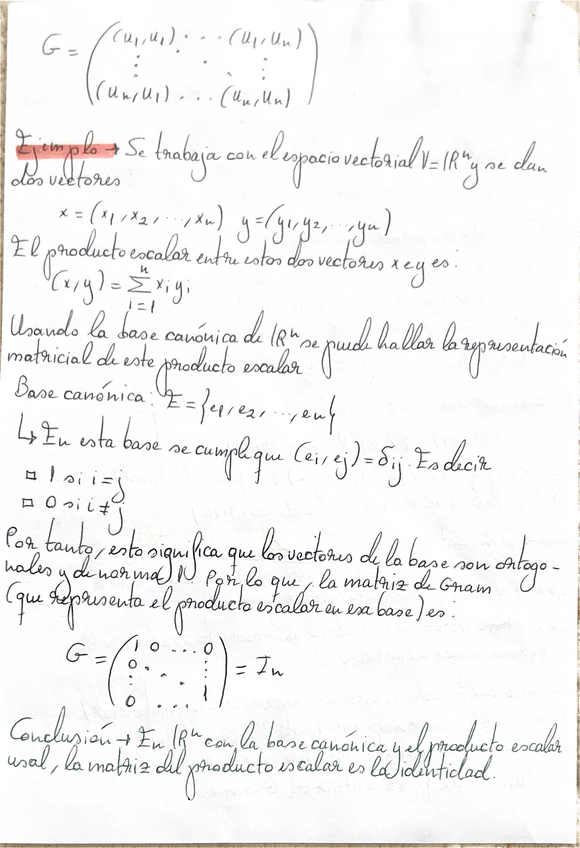 G = ( (u1,u1) . . . (u1,un)
⋮ ⋱ ⋮
(un,u1) . . . (un,un) )
Ejemplo → Se trabaja con el espacio vectorial V=ℝⁿ y se dan
dos vectores
x = (x1, x2, ..., xn) y = (y1, y2, ..., yn)
El producto escalar entre estos dos vectores x e y es:
(x,y) = Σ_{i=1}^{n} xi yi
Usando la base canónica de ℝⁿ se puede hallar la representación
matricial de este producto escalar
Base canónica: E = {e1, e2, ..., en}
↳ En esta base se cumple que (ei, ej) = δij. Es decir
▫ 1 si i=j
▫ 0 si i≠j
Por tanto, esto significa que los vectores de la base son ortogo-
nales y de norma 1. Por lo que, la matriz de Gram
(que representa el producto escalar en esa base) es:
G = ( 1 0 ... 0
0 ⋱ ⋮
0 ... 1 ) = In
Conclusión → En ℝⁿ con la base canónica y el producto escalar
usal, la matriz del producto escalar es la identidad.